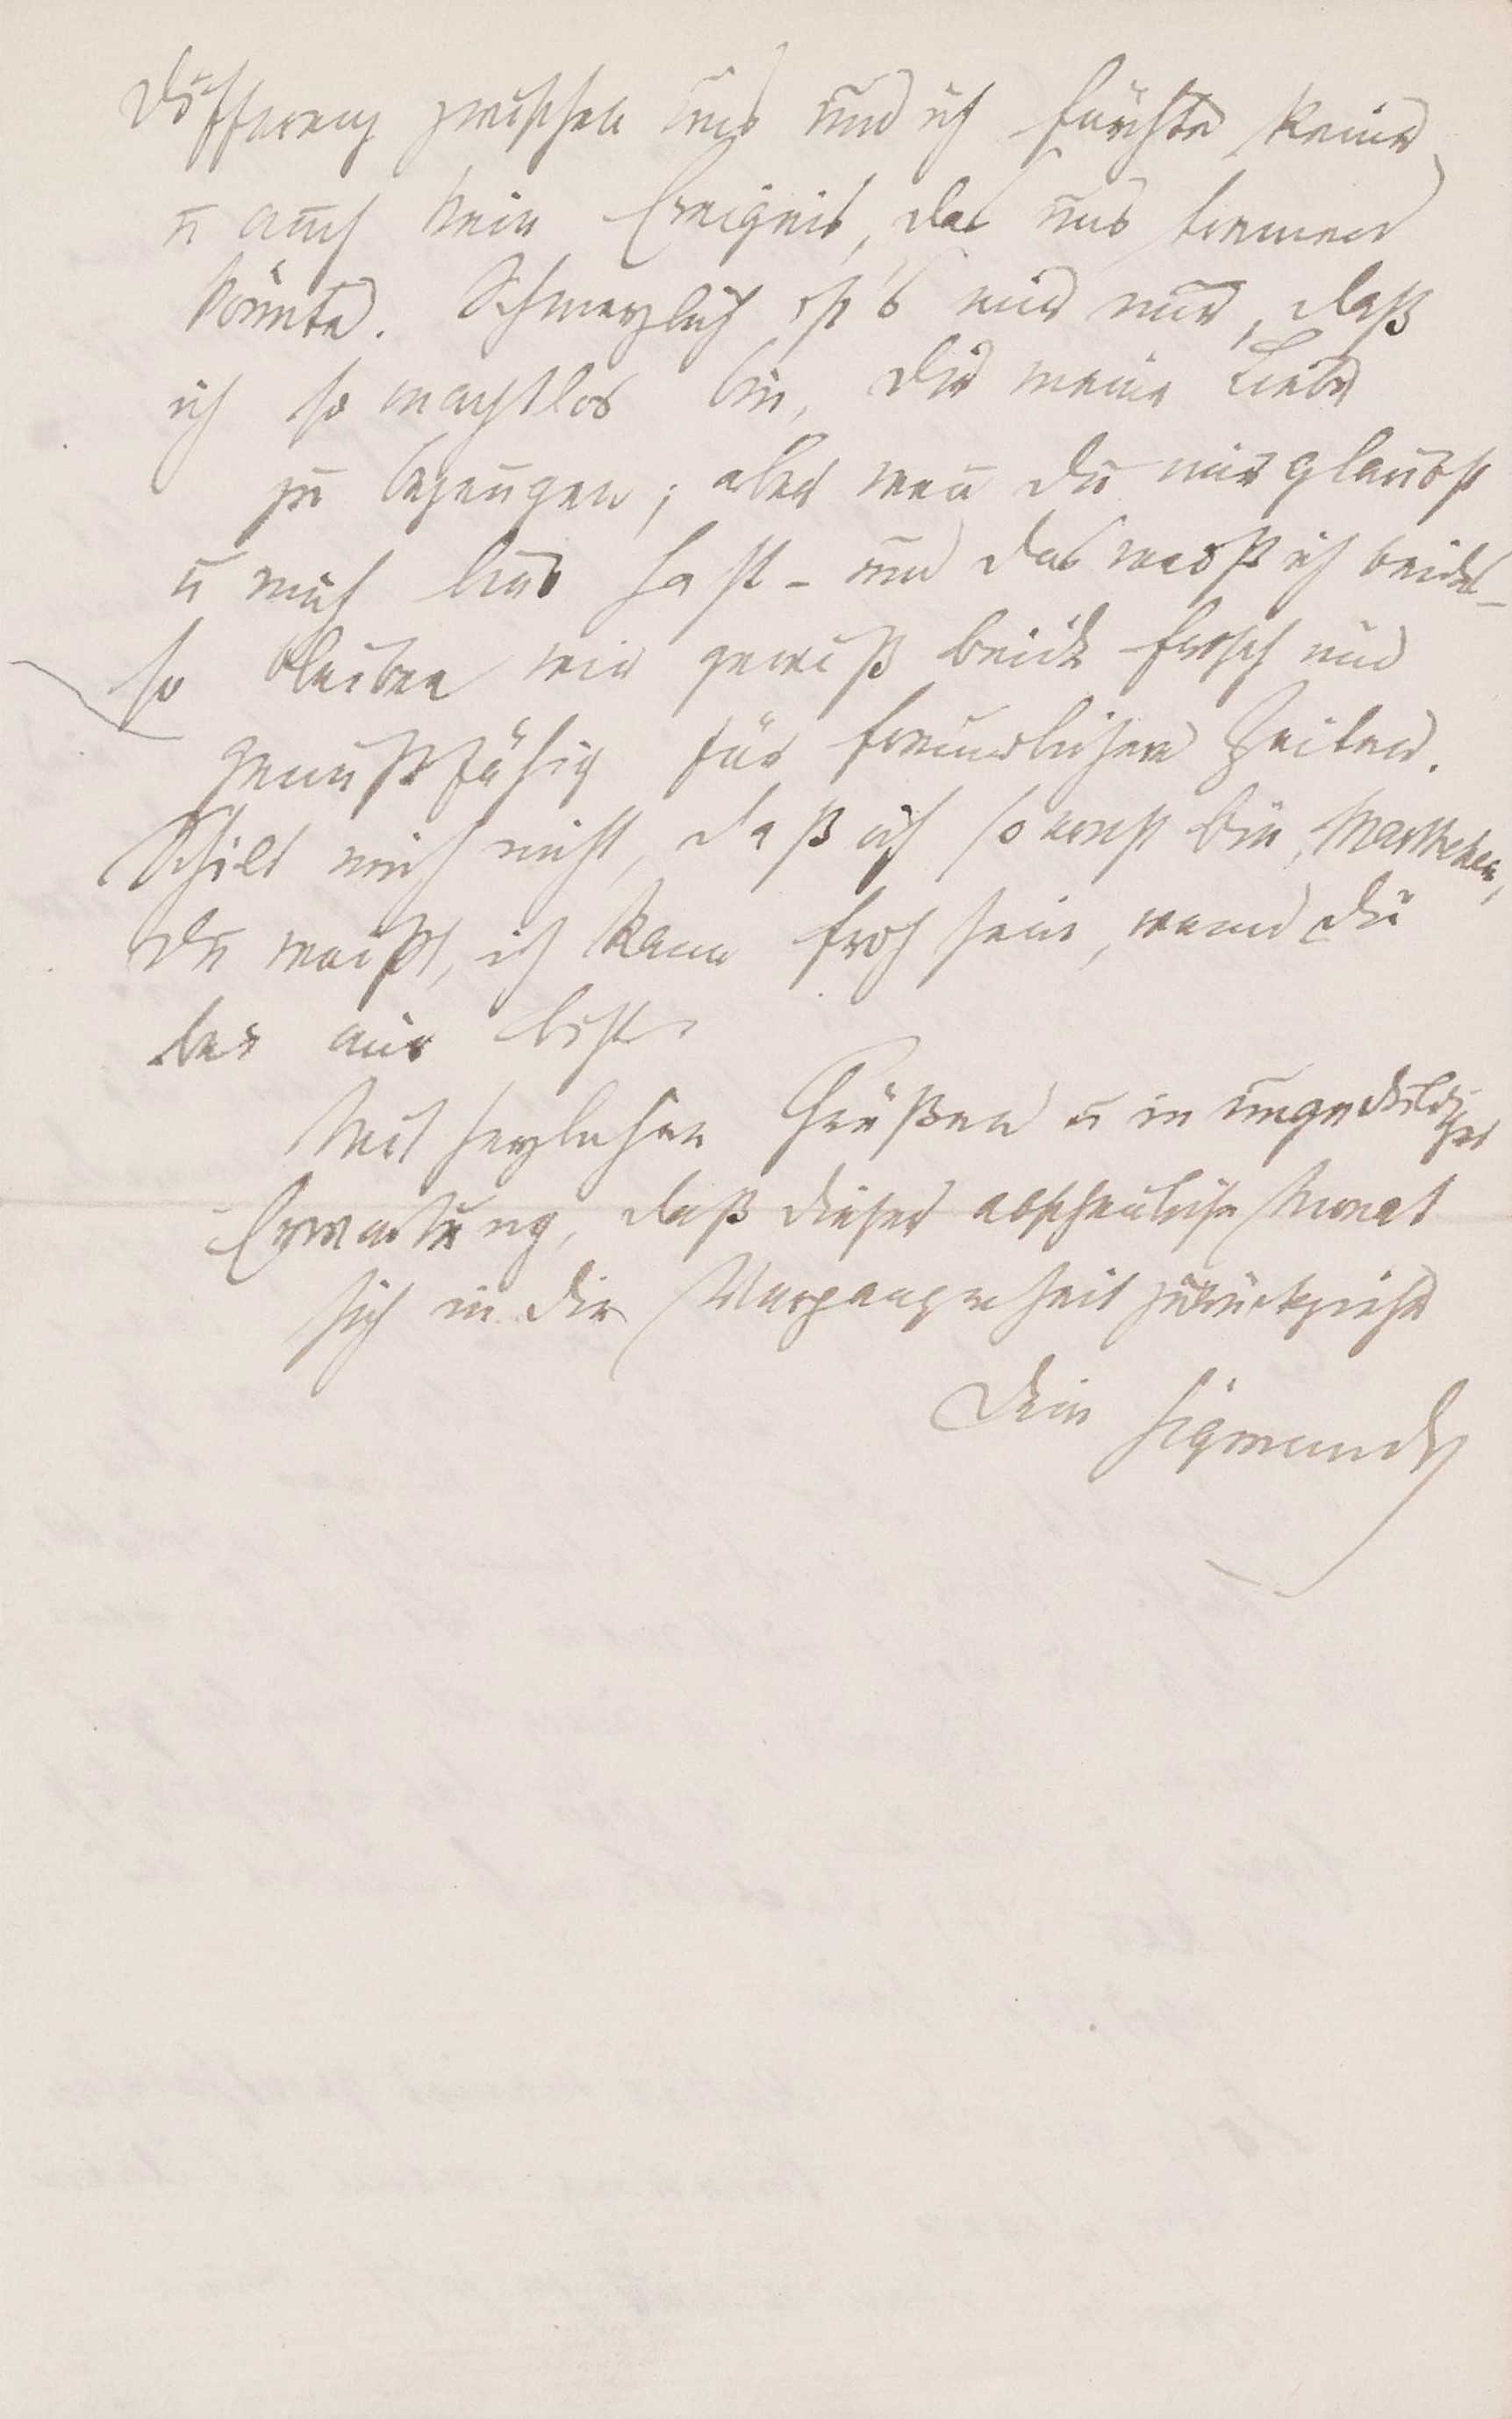 Differenz zwischen uns und ich fürchte keine
u auch kein Ereignis, das uns trennen
könnte. Schmerzlich ist's mir nur, daß
ich so machtlos bin, Dir meine Liebe
zu bezeugen; aber wenn Du mir glaubst
u mich lieb hast – und das weiß ich beides –
so bleiben wir gewiß beide frisch und
genußfähig für freundlichere Zeiten.
Schilt mich nicht, daß ich so ernst bin, Marthchen,
Du weißt, ich kann froh sein, wenn Du
bei mir bist.
Mit herzlichen Grüßen u in ungeduldiger
Erwartung, daß dieser abscheuliche Monat
sich in die Vergangenheit zurückziehe
Dein Sigmund